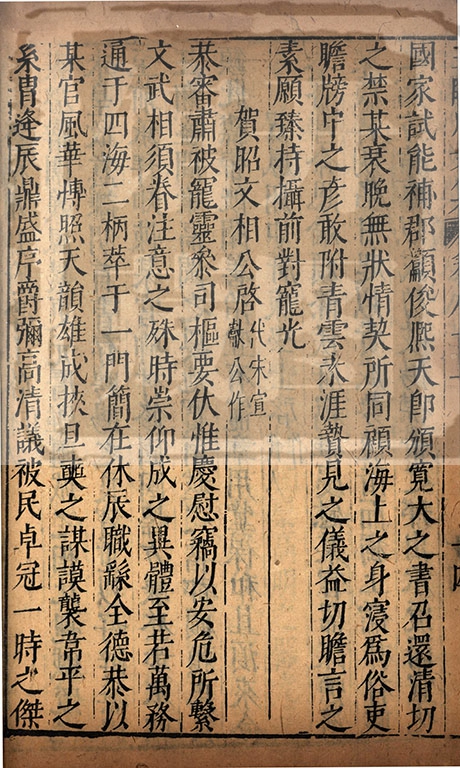 國家試能補郡籲俊熙天卽頒寬大之書召還清切
之禁某衰晚無狀情契所同顧海上之身寖爲俗吏
瞻牓中之彦敢附青雲未涯贄見之儀益切瞻言之
素願臻持攝前對寵光
賀昭文相公啓代宋宣獻公作
恭審肅被寵靈叅司樞要伏惟慶慰竊以安危所繫
文武相須眷注意之殊時崇仰成之異體至若萬務
通于四海二柄萃于一門簡在休辰職繇全德恭以
某官風華博照天韻雄成掞旦奭之謀謨襲韋平之
系胄逢辰鼎盛序爵彌高清議被民卓冠一時之傑